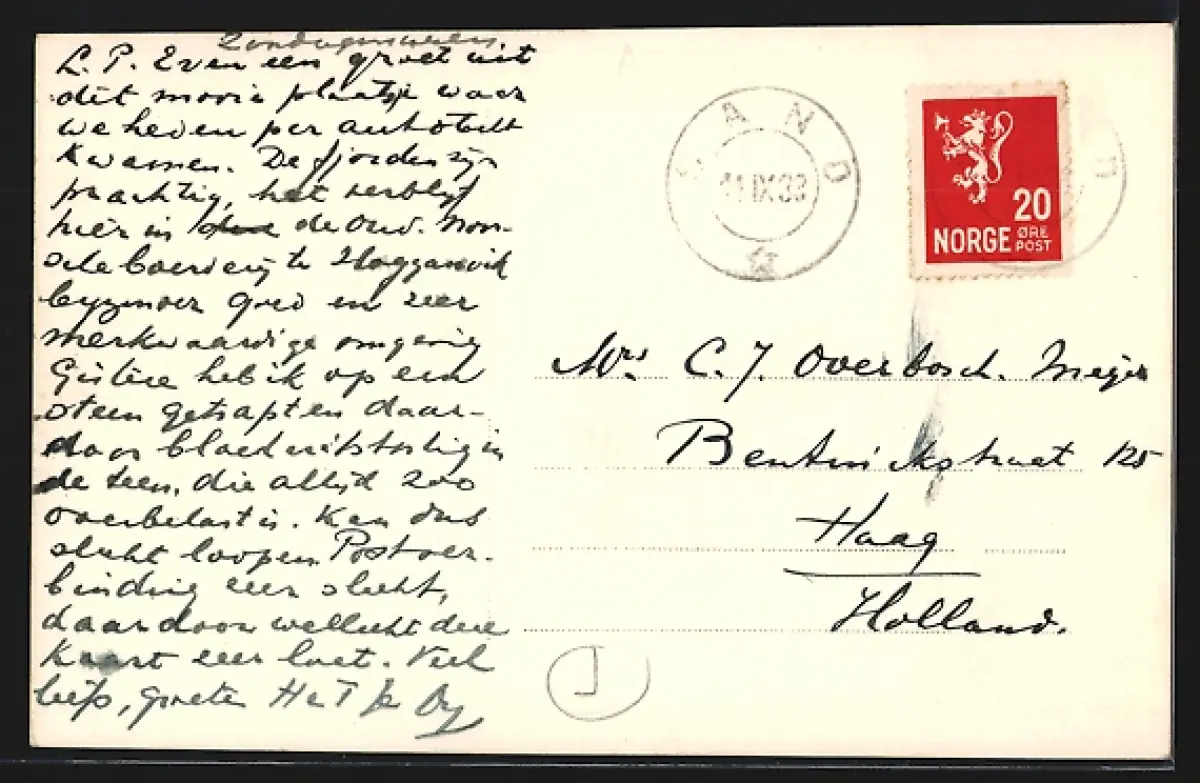 L. P. Even een groet uit
dit mooie plaatsje waar
we heden per autobelt
kwamen. De fjorden zijn
prachtig, het verblijf
hier in de Oud. Noor-
sche boerderij te
byzonder goed en zeer
merkwaardige omgeving
Gistere heb ik op een
steen getrapt en daar-
door bloeduitstorting in
de teen, die altijd zoo
overbelast is. Kan dus
slecht loopen. Postver-
binding zeer slecht,
daardoor wellicht deze
kaart zeer laat. Veel
liefs, groete
SAND
11 IX 38
20
NORGE ØRE POST
Mrs C. J. Overbosch. Meijer
Bentinckstraat 125
Haag
Holland.